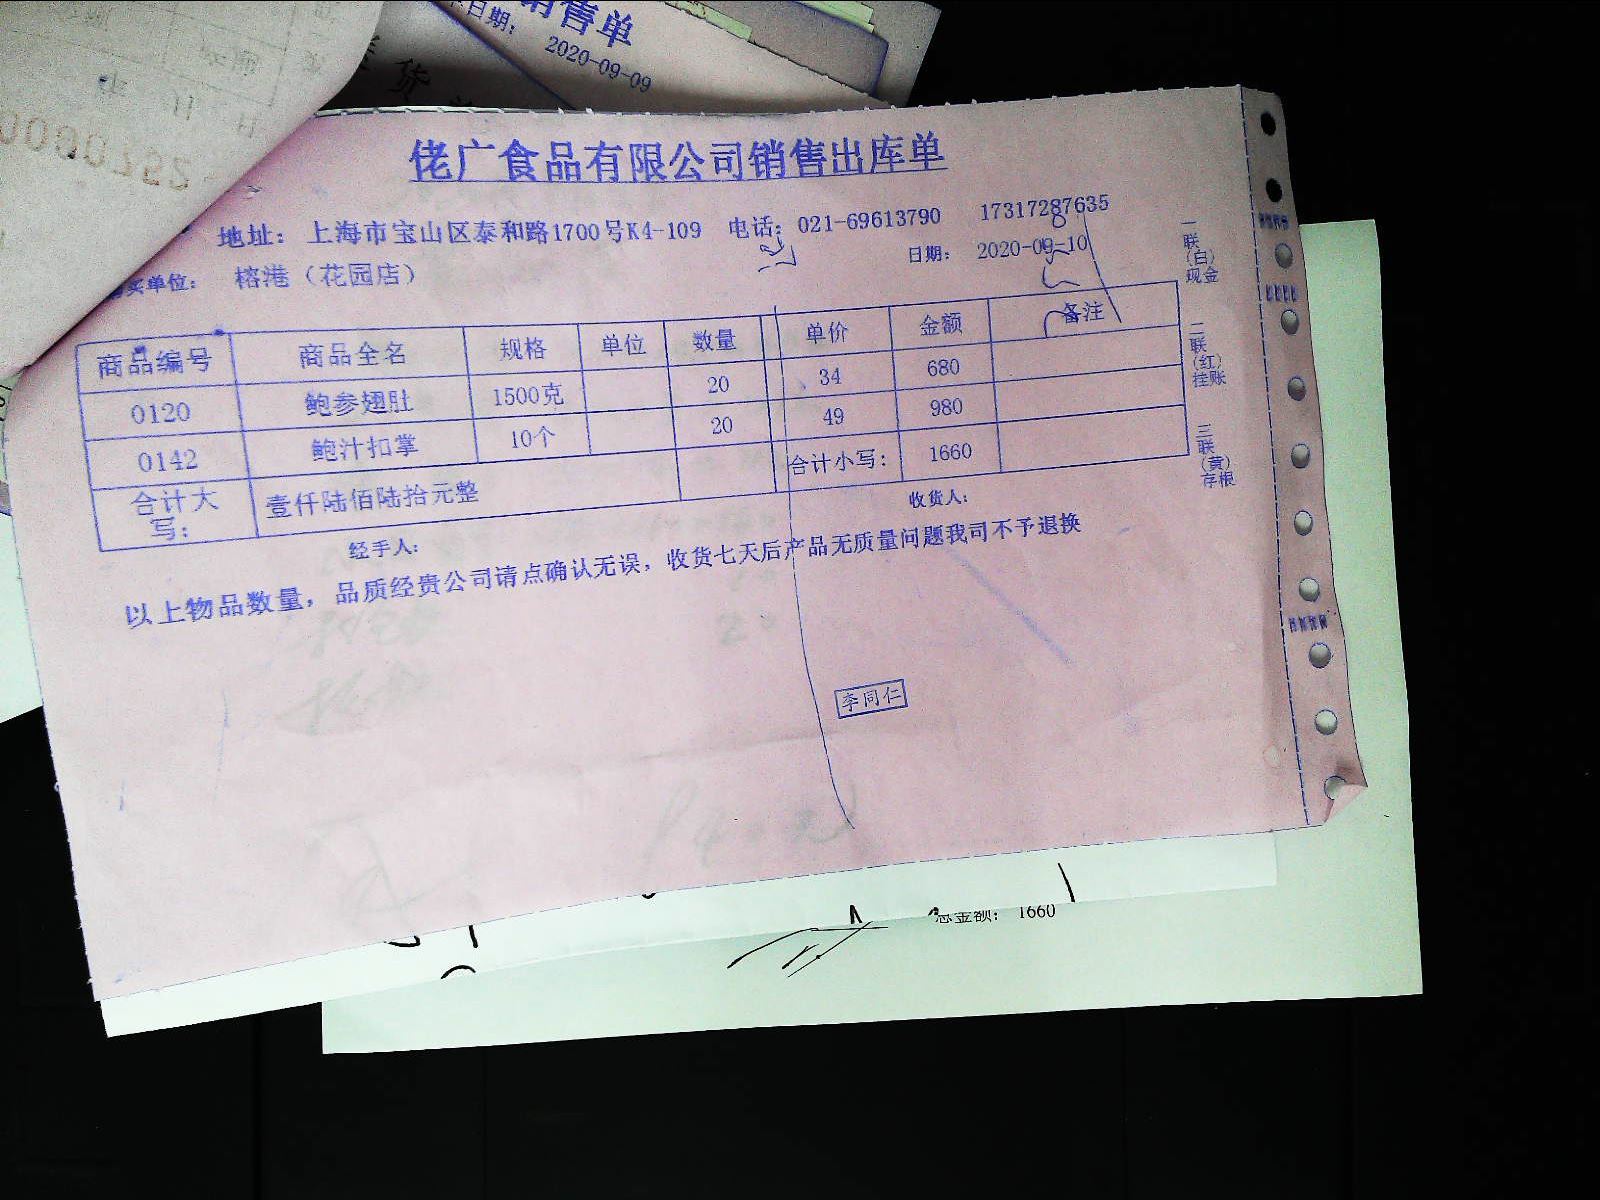 销售单
日期:
2020-09-09
货
佬广食品有限公司销售出库单
地址: 上海市宝山区泰和路1700号K4-109 电话: 021-69613790 17317287635
买单位: 榕港（花园店） 日期: 2020-09-10
商品编号 商品全名 规格 单位 数量 单价 金额 备注
0120 鲍参翅肚 1500克 20 34 680
0142 鲍汁扣掌 10个 20 49 980
合计大写: 壹仟陆佰陆拾元整 合计小写: 1660
经手人: 收货人:
以上物品数量，品质经贵公司请点确认无误，收货七天后产品无质量问题我司不予退换
李同仁
一联（白）现金
二联（红）挂账
三联（黄）存根
总金额: 1660